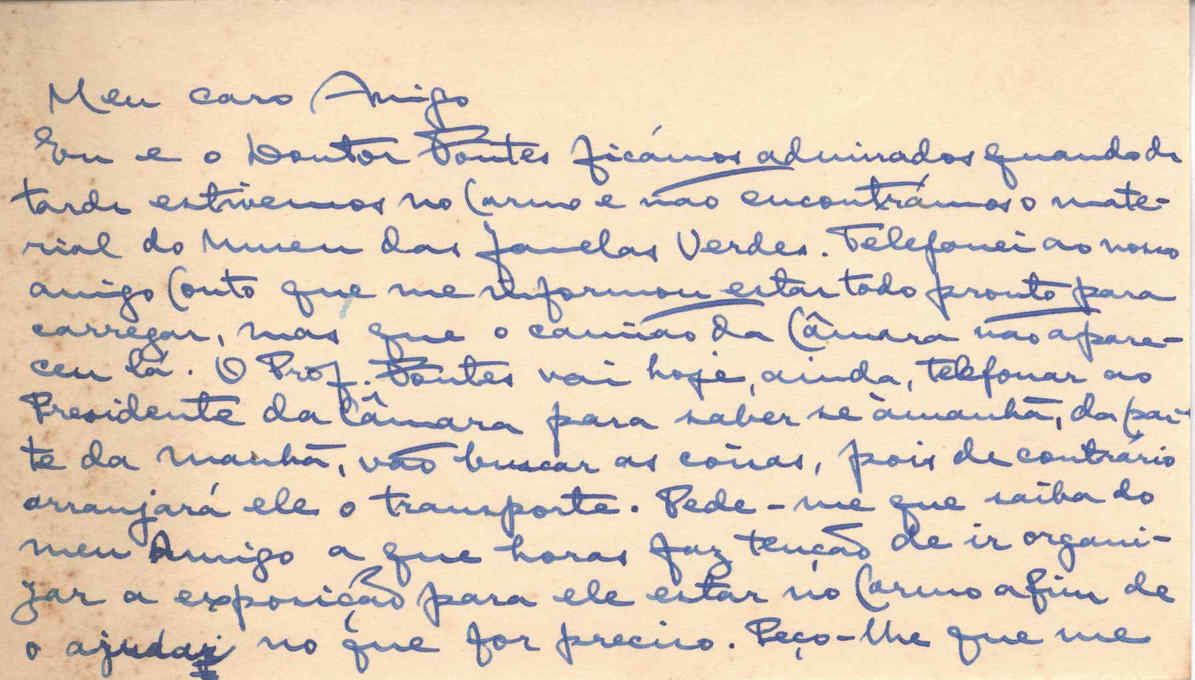 Meu caro Amigo
Eu e o Doutor Pontes ficámos admirados quando de
tarde estivemos no Carmo e não encontrámos o mate-
rial do Museu das Janelas Verdes. Telefonei ao nosso
amigo Couto que me informou estar tudo pronto para
carregar, mas que o camião da Câmara não apare-
ceu lá. O Prof. Pontes vai hoje, ainda, telefonar ao
Presidente da Câmara para saber se àmanhã, da par-
te da manhã, vão buscar as coisas, pois de contrário
arranjará ele o transporte. Pede-me que saiba do
meu Amigo a que horas faz tenção de ir organi-
zar a exposição para ele estar no Carmo afim de
o ajudar no que for preciso. Peço-lhe que me